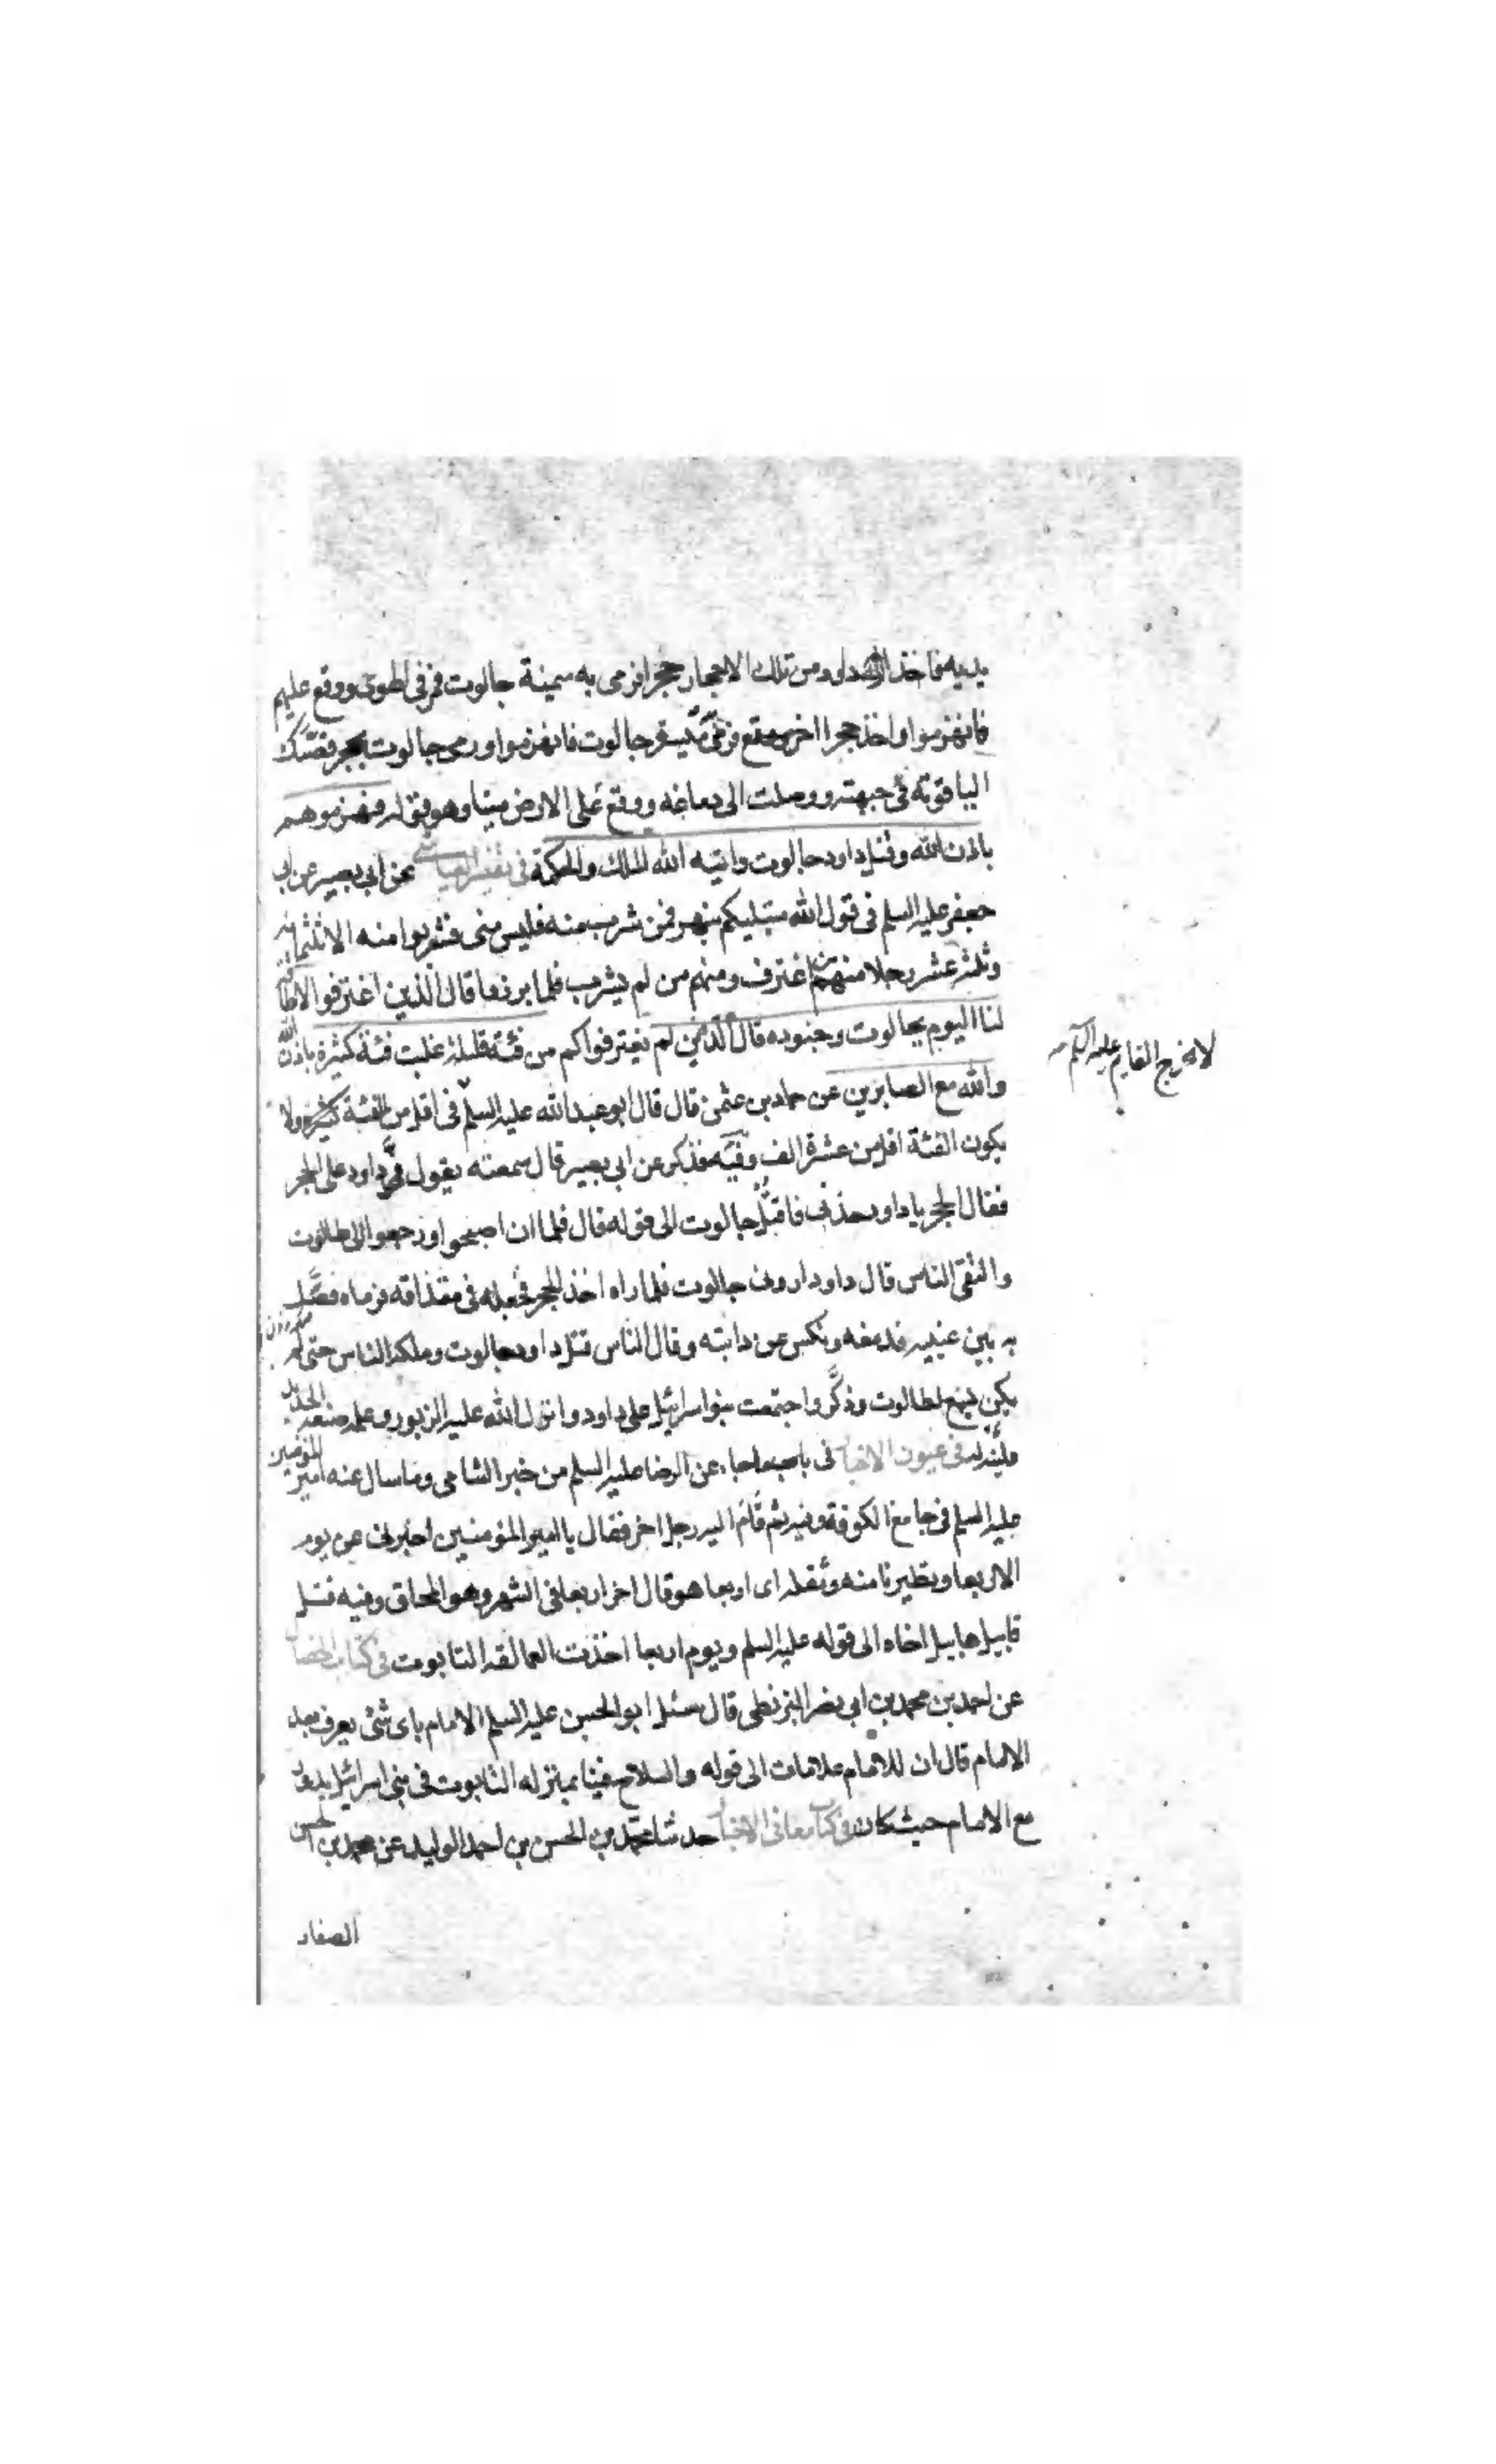 يديه فاخذ داود من تلك الاحجار حجرا فرمى به ميمنة جالوت فمر فى الهوى ووقع عليهم
فانهزموا واخذ حجرا اخر فرمى به ميسرة جالوت فانهزموا ورمى جالوت بحجر فصكت
الياقوتة فى جبهته ووصلت الى دماغه ووقع على الارض ميتا وهو قوله فهزموهم
باذن الله وقتل داود جالوت واتيه الله الملك والحكمة فى تفسير العياشى عن ابى بصير عن ابى
جعفر عليه السلم فى قول الله مبتليكم بنهر فمن شرب منه فليس منى فشربوا منه الا ثلثمائة
وثلثة عشر رجلا منهم من اغترف ومنهم من لم يشرب فلما برزوا قال الذين اغترفوا لا طاقة
لنا اليوم بجالوت وجنوده قال الذين لم يغترفوا كم من فئة قليلة غلبت فئة كثيرة باذن الله
والله مع الصابرين عن حماد بن عثمن قال قال ابو عبد الله عليه السلم
لا يخرج القايم عليه السلم
فى اقل من الفئة ولا
يكون الفئة اقل من عشرة الف وفيه فذكر عن ابى بصير قال سمعته يقول فمر داود على الحجر
فقال الحجر يا داود خذنى فاقتل بى جالوت الى قوله قال فلما ان اصبحوا ورجعوا الى طالوت
والتقى الناس قال داود ارونى جالوت فلما راه اخذ الحجر فجعله فى مقذافه فرماه فصك
به بين عينيه فدمغه ونكس عن دابته وقال الناس قتل داود جالوت وملكه الناس حتى لم
يكن يسمع لطالوت ذكر واجتمعت بنو اسرائيل على داود وانزل الله عليه الزبور وعلمه صنعة الحديد
فلينه له فى عيون الاخبار فى باب ما جاء عن الرضا عليه السلم من خبر الشامى وما سال عنه امير المؤمنين
عليه السلم فى جامع الكوفة وفيه ثم قام اليه رجل اخر فقال يا امير المؤمنين اخبرنى عن يوم
الاربعا وتطيرنا منه وثقله اى اربعا هو قال اخر اربعا فى الشهر وهو المحاق وفيه قتل
قابيل هابيل اخاه الى قوله عليه السلم ويوم اربعا اخذت العمالقه التابوت فى كتاب الخصال
عن احمد بن محمد بن ابى نصر البزنطى قال سئل ابو الحسن عليه السلم الامام باى شئ يعرف بعد
الامام قال ان للامام علامات الى قوله والسلاح فينا بمنزله التابوت فى بنى اسرائيل يدور
مع الامام حيث كان فى كتاب معانى الاخبار حدثنا محمد بن الحسن بن احمد الوليد عن محمد بن الحسن
الصفار